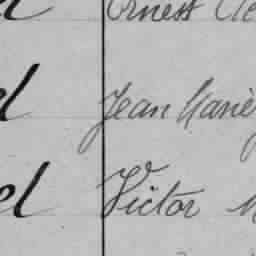 Ernest
el Jean Marie
el Victor